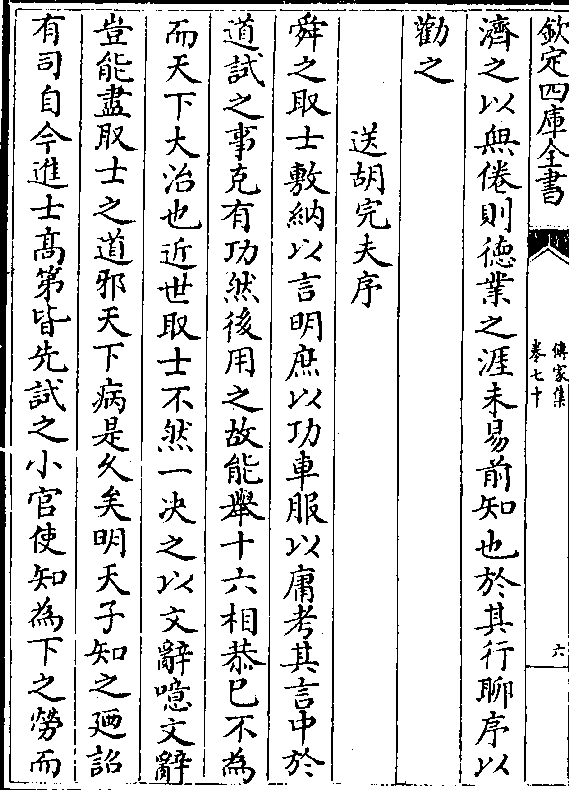 欽定四庫全書
傳家集
卷七十
六
濟之以無倦則德業之涯未易前知也於其行聊序以
勸之
送胡完夫序
舜之取士敷納以言明庶以功車服以庸考其言中於
道試之事克有功然後用之故能舉十六相恭已不為
而天下大治也近世取士不然一决之以文辭噫文辭
豈能盡取士之道邪天下病是久矣明天子知之廼詔
有司自今進士髙第皆先試之小官使知為下之勞而